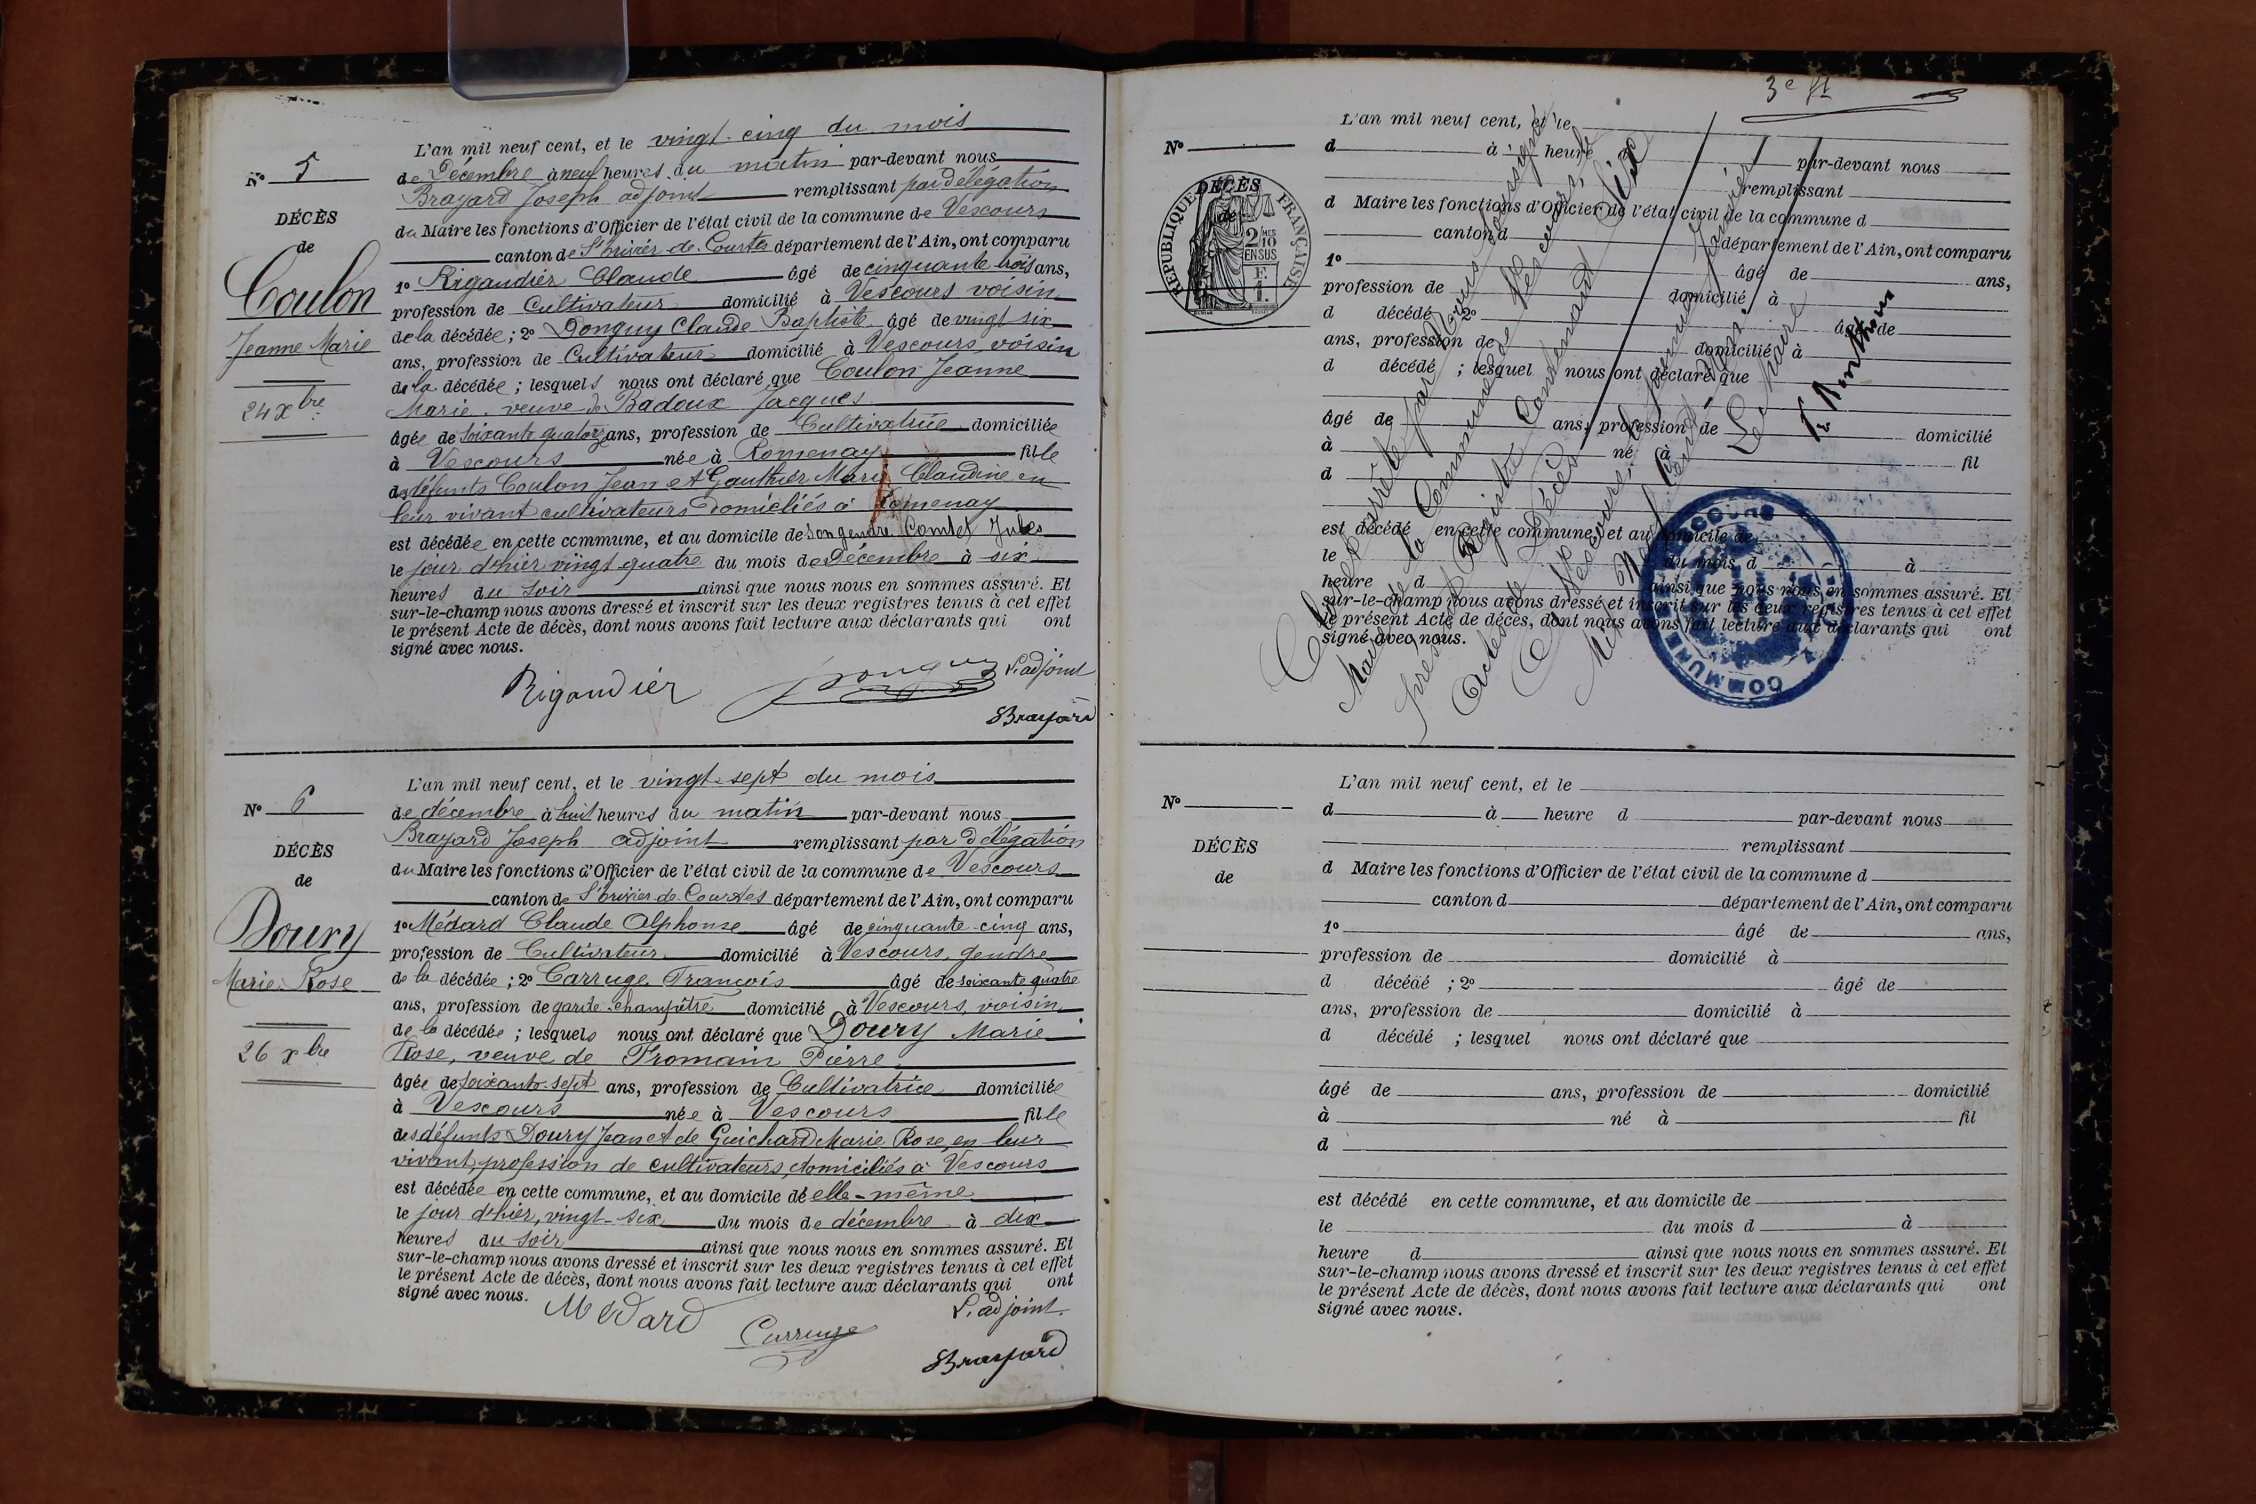 L'an mil neuf cent, et le vingt-cinq du mois
N° 5
de Décembre à neuf heures du matin par-devant nous
Brayard Joseph adjoint remplissant par délégation
DÉCÈS
du Maire les fonctions d'Officier de l'état civil de la commune de Vescours
de
canton de St Trivier de Courtes département de l'Ain, ont comparu
Coulon
1° Rigaudier Claude âgé de cinquante trois ans,
profession de Cultivateur domicilié à Vescours voisin
Jeanne Marie
de la décédée ; 2° Donguy Claude Baptiste âgé de vingt six
ans, profession de Cultivateur domicilié à Vescours, voisin
de la décédée ; lesquels nous ont déclaré que Coulon Jeanne
24 xbre
Marie. veuve de Badoux Jacques
âgée de soixante quatorze ans, profession de Cultivatrice domiciliée
à Vescours née à Romenay fille
des défunts Coulon Jean et Gauthier Marie Claudine en
leur vivant cultivateurs domiciliés à Romenay
est décédée en cette commune, et au domicile de son gendre Comtet Jules
le jour d'hier vingt quatre du mois de Décembre à six
heures du soir ainsi que nous nous en sommes assuré. Et
sur-le-champ nous avons dressé et inscrit sur les deux registres tenus à cet effet
le présent Acte de décès, dont nous avons fait lecture aux déclarants qui ont
signé avec nous.
Rigaudier Donguy L'adjoint
Brayard
L'an mil neuf cent, et le vingt-sept du mois
N° 6
de décembre à huit heures du matin par-devant nous
Brayard Joseph adjoint remplissant par délégation
DÉCÈS
du Maire les fonctions d'Officier de l'état civil de la commune de Vescours
de
canton de St Trivier de Courtes département de l'Ain, ont comparu
Doury
1° Médard Claude Alphonse âgé de cinquante-cinq ans,
profession de Cultivateur domicilié à Vescours, gendre
Marie-Rose
de la décédée ; 2° Carruge François âgé de soixante quatre
ans, profession de garde-champêtre domicilié à Vescours, voisin
de la décédée ; lesquels nous ont déclaré que Doury Marie
26 xbre
Rose, veuve de Fromain Pierre
âgée de soixante-sept ans, profession de Cultivatrice domiciliée
à Vescours née à Vescours fille
des défunts Doury Jean et de Guichard Marie Rose, en leur
vivant, profession de cultivateurs, domiciliés à Vescours
est décédée en cette commune, et au domicile de elle-même
le jour d'hier, vingt-six du mois de décembre à dix
heures du soir ainsi que nous nous en sommes assuré. Et
sur-le-champ nous avons dressé et inscrit sur les deux registres tenus à cet effet
le présent Acte de décès, dont nous avons fait lecture aux déclarants qui ont
signé avec nous.
Médard Carruge L'adjoint
Brayard
3e ft
L'an mil neuf cent, et le
N°
d à heure par-devant nous
DÉCÈS
de
remplissant
d Maire les fonctions d'Officier de l'état civil de la commune d
canton d département de l'Ain, ont comparu
RÉPUBLIQUE FRANÇAISE
2 10MES
EN SUS
1° âgé de ans,
profession de domicilié à
d décédé 2° âgé de
ans, profession de domicilié à
d décédé ; lesquel nous ont déclaré que
âgé de ans, profession de domicilié
à né à fil
d
est décédé en cette commune, et au domicile de
le du mois d à
heure d ainsi que nous nous en sommes assuré. Et
sur-le-champ nous avons dressé et inscrit sur les deux registres tenus à cet effet
le présent Acte de décès, dont nous avons fait lecture aux déclarants qui ont
signé avec nous.
Clos et arrêté par Nous soussigné
Maire de la Commune de Vescours, le
présent Registre Contenant Six
Actes de Décès
A Vescours, le premier Janvier
Mil Neuf Cent Un.
Le Maire
COMMUNE VESCOURS
L'an mil neuf cent, et le
N°
d à heure d par-devant nous
remplissant
DÉCÈS
d Maire les fonctions d'Officier de l'état civil de la commune d
de
canton d département de l'Ain, ont comparu
1° âgé de ans,
profession de domicilié à
d décédé ; 2° âgé de
ans, profession de domicilié à
d décédé ; lesquel nous ont déclaré que
âgé de ans, profession de domicilié
à né à fil
d
est décédé en cette commune, et au domicile de
le du mois d à
heure d ainsi que nous nous en sommes assuré. Et
sur-le-champ nous avons dressé et inscrit sur les deux registres tenus à cet effet
le présent Acte de décès, dont nous avons fait lecture aux déclarants qui ont
signé avec nous.